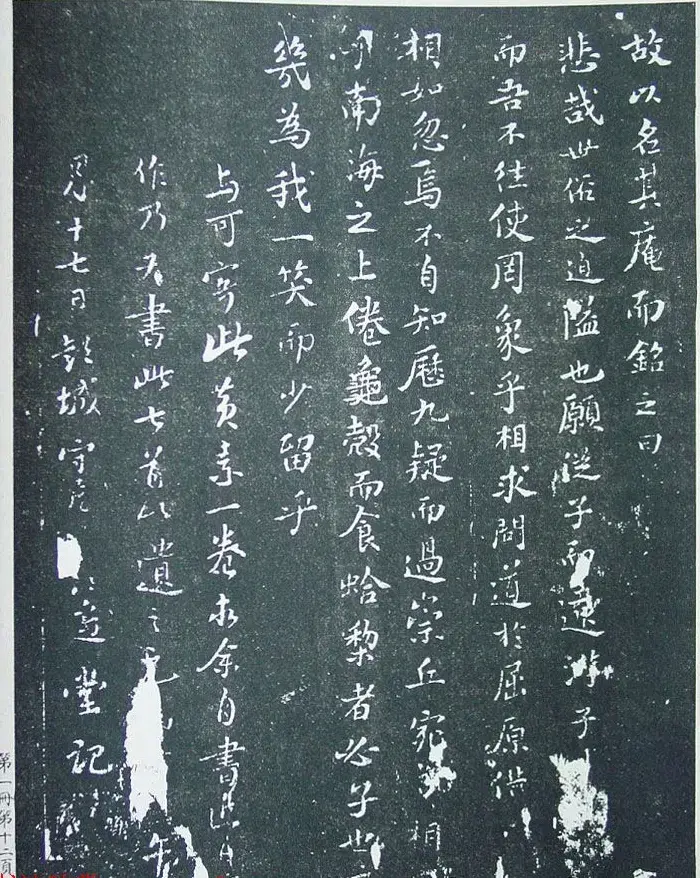 故以名其庵而銘之曰
悲哉世俗之迫隘也願從子而遠游子
而吾不往使罔象乎相求問道於屈原借
相如忽焉不自知歷九疑而過崇丘宛兮相
乎南海之上倦龜殼而食蛤梨者必子也
幾為我一笑而少留乎
與可寄此黃素一卷求余自書近日
作乃為書此七首以遺之元
月十七日彭城守居堂記
第一冊第十二頁